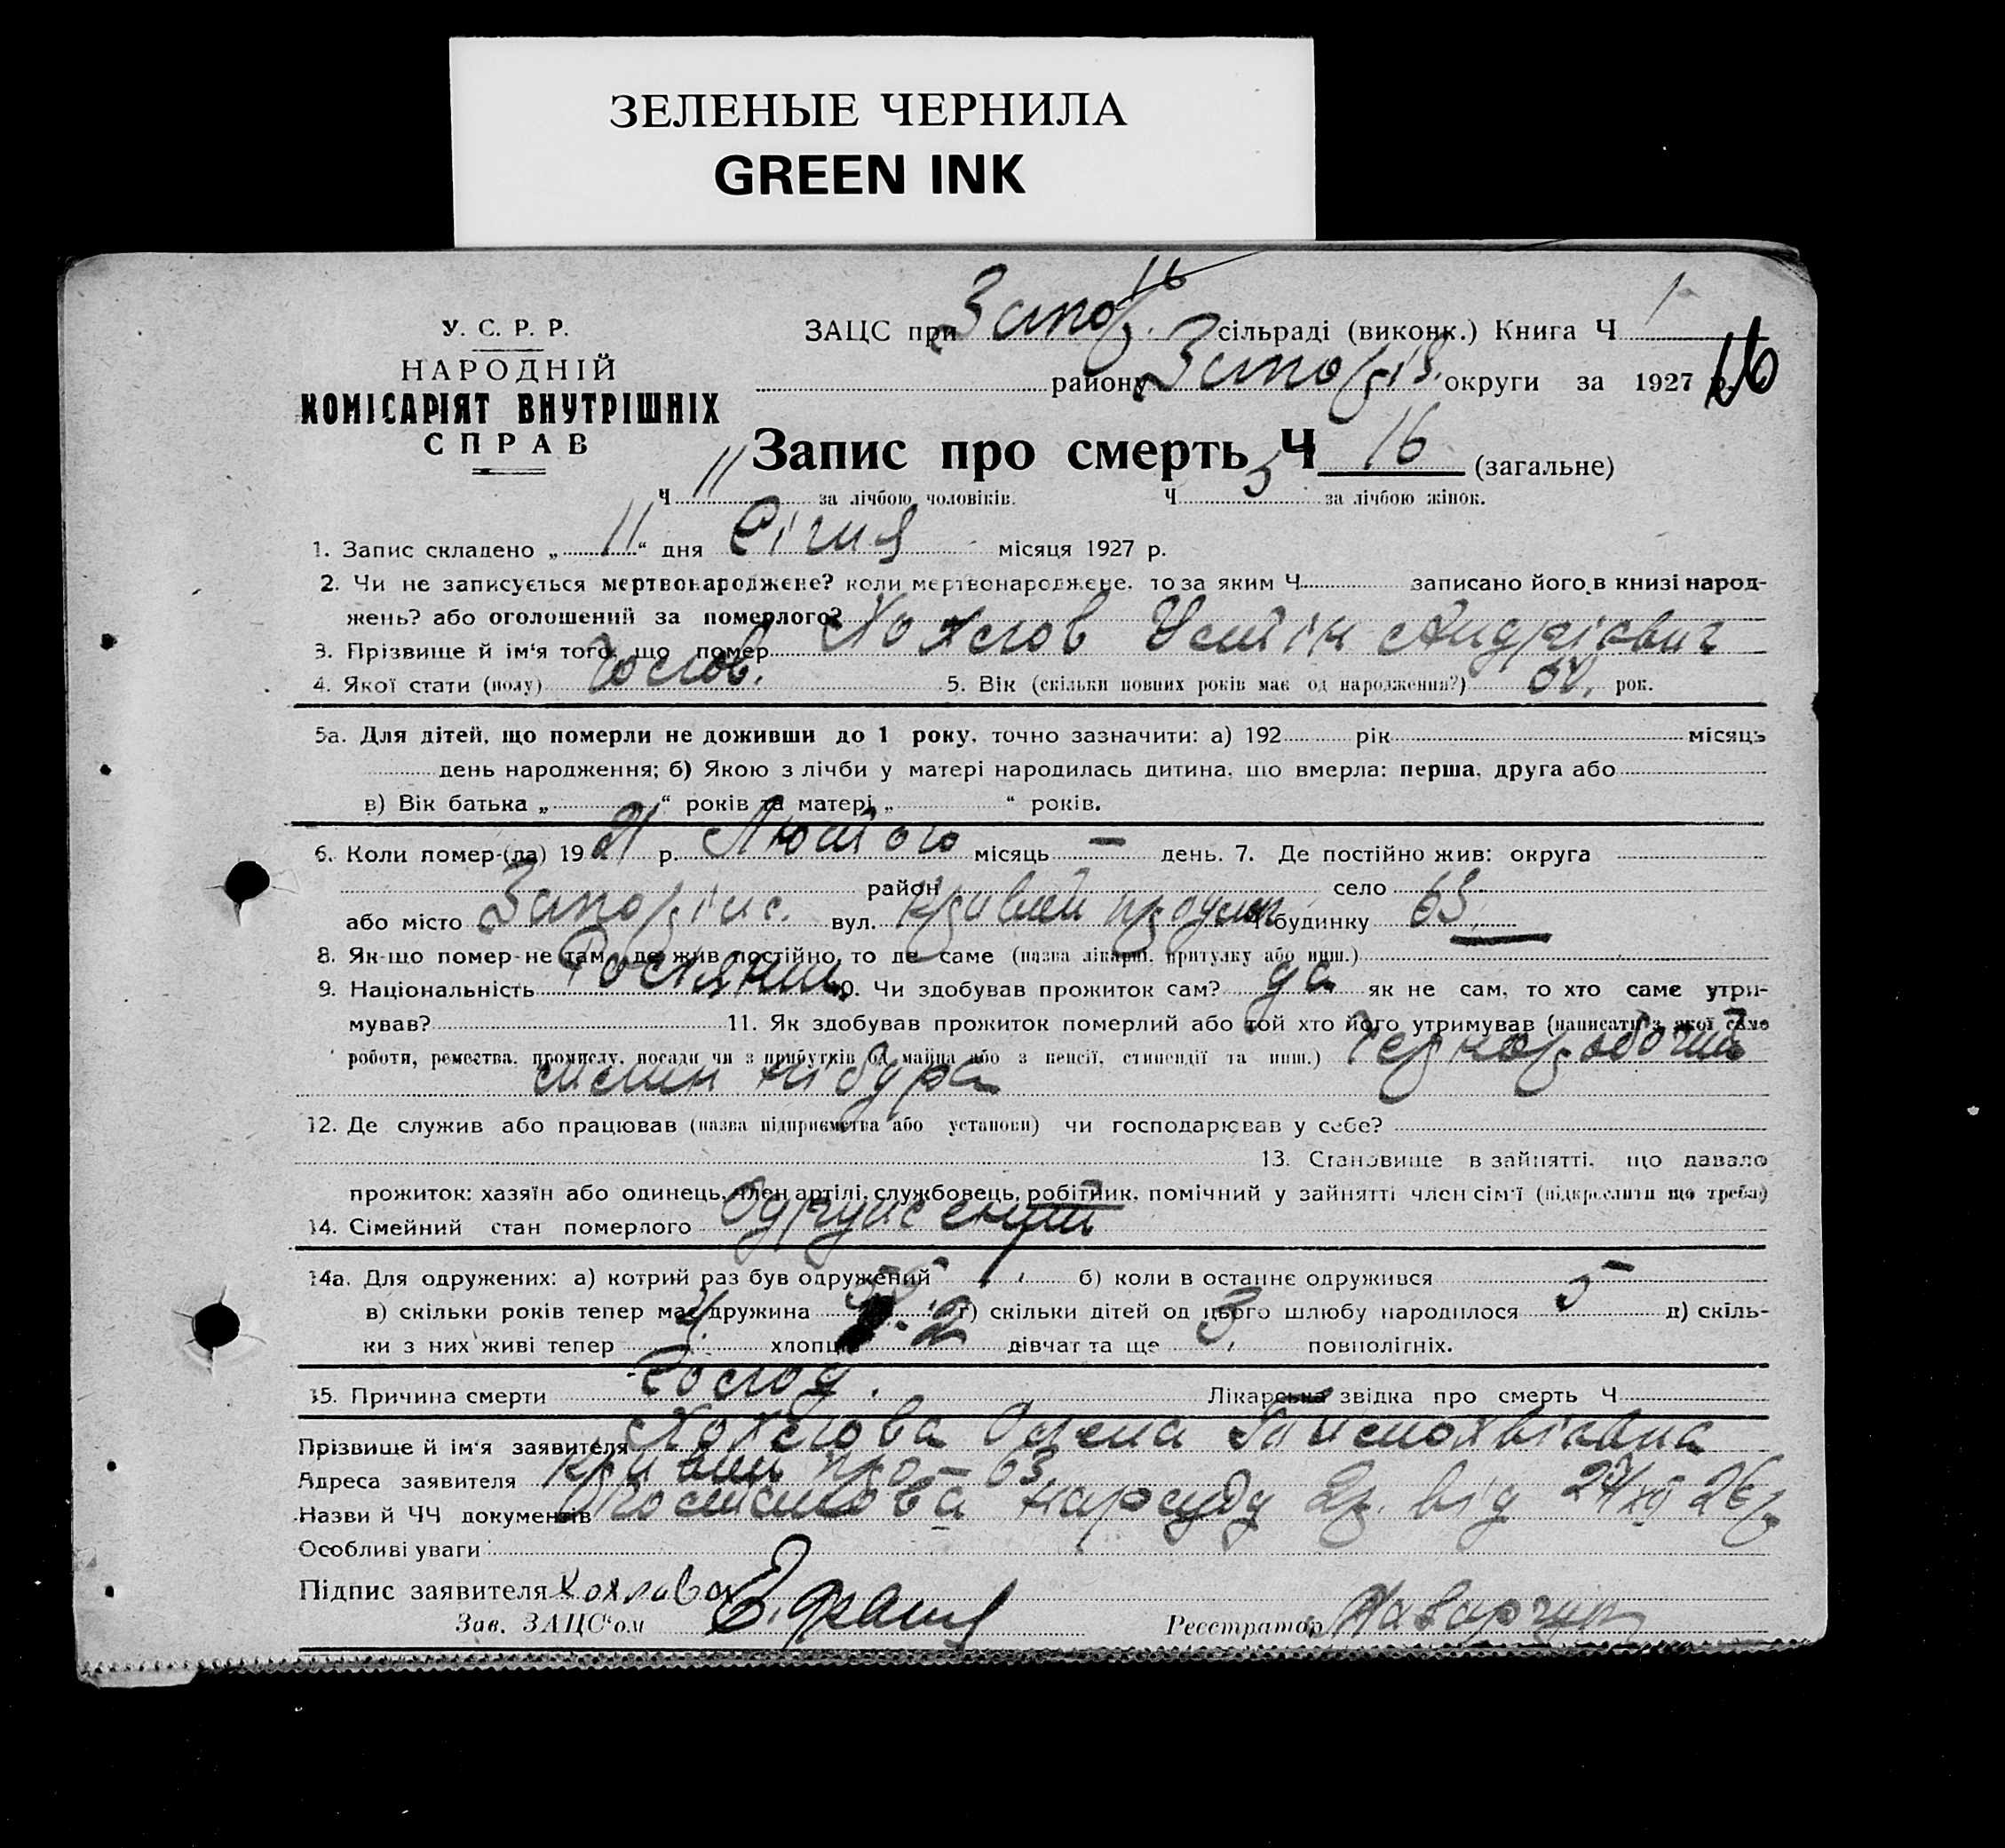 ЗЕЛЕНЫЕ ЧЕРНИЛА
GREEN INK
16
У. С. Р. Р.
НАРОДНІЙ
КОМІСАРІЯТ ВНУТРІШНІХ
СПРАВ
ЗАЦС при Запор. сільраді (виконк.) Книга Ч 1
району Запоріз. округи за 1927 р. 16
Запис про смерть Ч 16 (загальне)
Ч 11 за лічбою чоловіків. Ч 5 за лічбою жінок.
1. Запис складено „ 11 “ дня Січня місяця 1927 р.
2. Чи не записується мертвонароджене? коли мертвонароджене, то за яким Ч записано його в книзі народ-
жень? або оголошений за померлого?
3. Прізвище й ім'я того, що помер Хохлов Устін Андрієвич
4. Якої стати (полу) чолов. 5. Вік (скільки повних років має од народження?) рок.
5а. Для дітей, що померли не доживши до 1 року, точно зазначити: а) 192 рік місяць
день народження; б) Якою з лічби у матері народилась дитина, що вмерла: перша, друга або
в) Вік батька „ “ років та матері „ “ років.
6. Коли помер-(ла) 19 21 р. Лютого місяць — день. 7. Де постійно жив: округа
район село
або місто Запоріжс. вул. Кривий будинку 63
8. Як-що помер не там, де жив постійно, то де саме (назва лікарні, притулку або инш.)
9. Національність Росіянин 10. Чи здобував прожиток сам? да як не сам, то хто саме утри-
мував? 11. Як здобував прожиток померлий або той хто його утримував (написати з якої саме
роботи, ремества, промислу, посади чи з прибутків од майна або з пенсії, стипендії та инш.) Чернорабочий
12. Де служив або працював (назва підприємства або установи) чи господарював у себе?
13. Становище в зайнятті, що давало
прожиток: хазяїн або одинець, член артілі, службовець, робітник, помічний у зайнятті член сім'ї (підкреслити що треба)
14. Сімейний стан померлого Одружений
14а. Для одружених: а) котрий раз був одружений 1 б) коли в останнє одружився
в) скільки років тепер має дружина г) скільки дітей од цього шлюбу народилося 5 д) скіль-
ки з них живі тепер хлопців 2 дівчат та ще 3 повнолітніх.
15. Причина смерти Голод. Лікарська звідка про смерть Ч
Прізвище й ім'я заявителя Хохлова
Адреса заявителя Кривий про— 63.
Назви й ЧЧ документів Постанова нарсуду від
Особливі уваги
Підпис заявителя Хохлова
Зав. ЗАЦС'ом Реєстратор